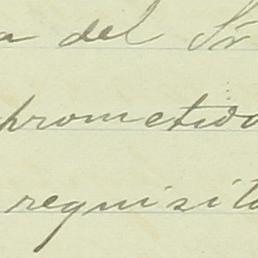 a del Sr
prometido
requisito